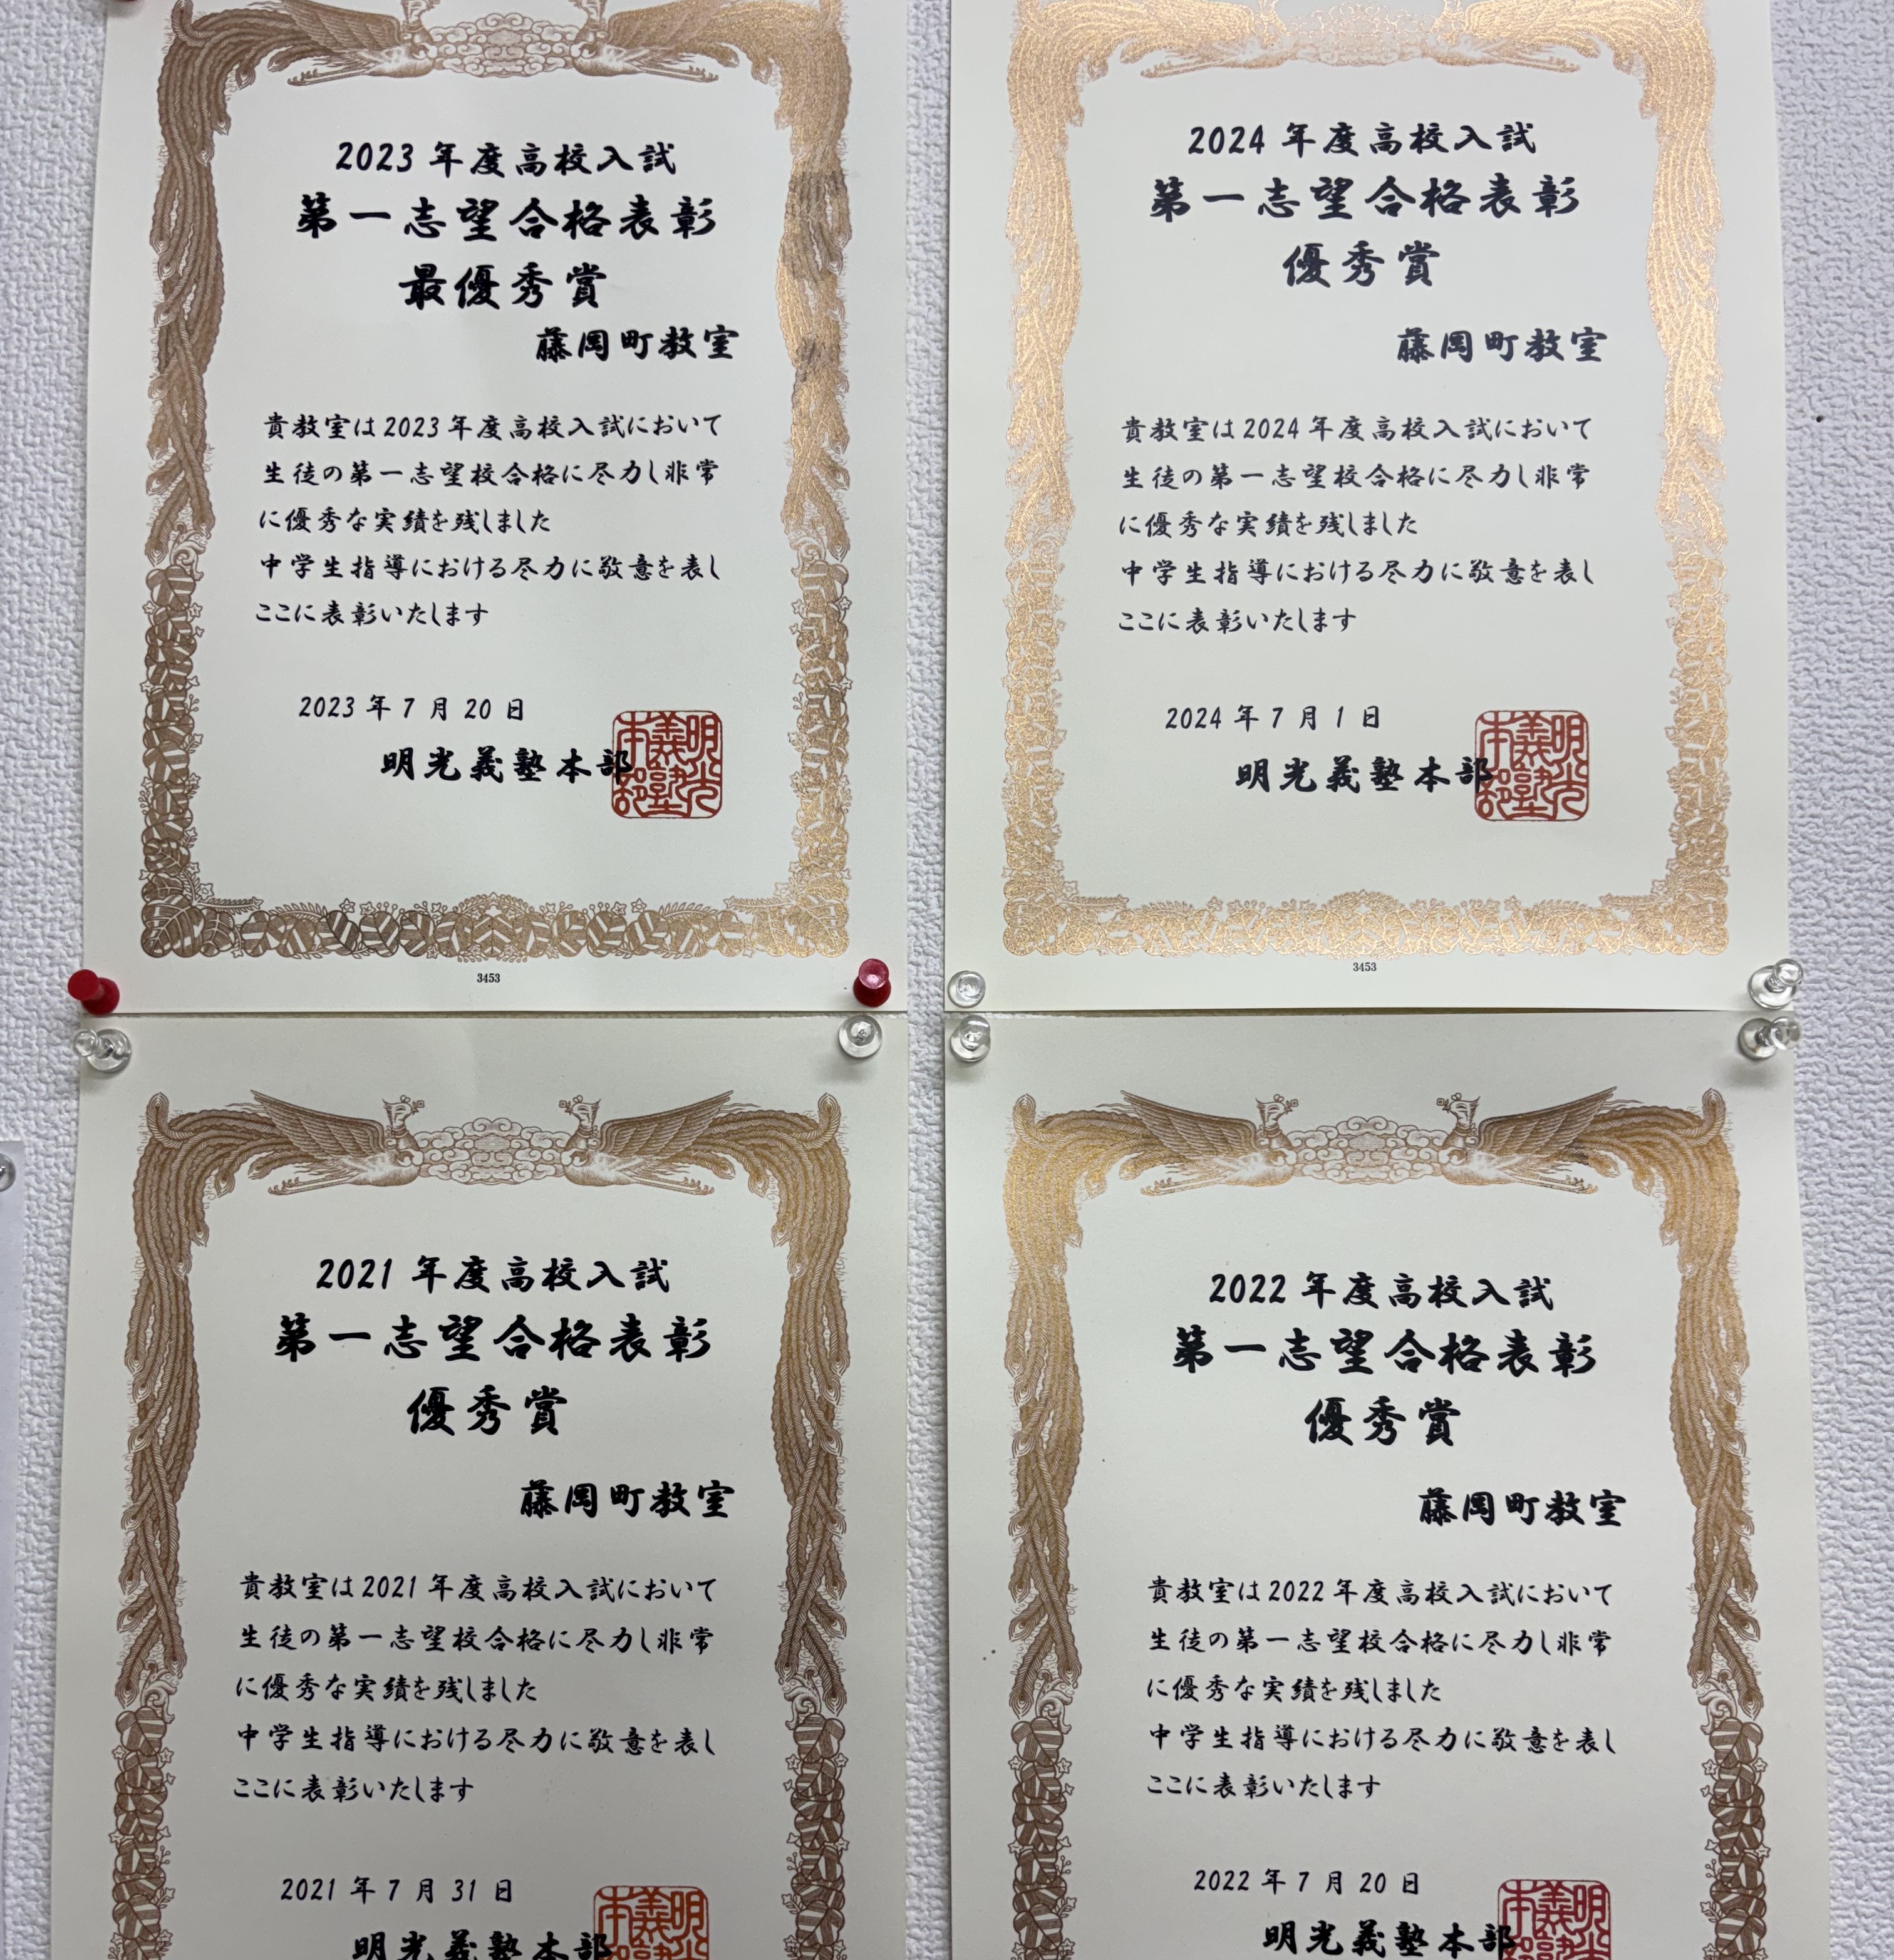 2023 年度高校入試
第一志望合格表彰
最優秀賞
藤岡町教室
貴教室は 2023 年度高校入試において
生徒の第一志望校合格に尽力し非常
に優秀な実績を残しました
中学生指導における尽力に敬意を表し
ここに表彰いたします
2023 年 7 月 20 日
明光義塾本部
明光義塾本部
3453
2024 年度高校入試
第一志望合格表彰
優秀賞
藤岡町教室
貴教室は 2024 年度高校入試において
生徒の第一志望校合格に尽力し非常
に優秀な実績を残しました
中学生指導における尽力に敬意を表し
ここに表彰いたします
2024 年 7 月 1 日
明光義塾本部
明光義塾本部
3453
2021 年度高校入試
第一志望合格表彰
優秀賞
藤岡町教室
貴教室は 2021 年度高校入試において
生徒の第一志望校合格に尽力し非常
に優秀な実績を残しました
中学生指導における尽力に敬意を表し
ここに表彰いたします
2021 年 7 月 31 日
明光義塾本部
2022 年度高校入試
第一志望合格表彰
優秀賞
藤岡町教室
貴教室は 2022 年度高校入試において
生徒の第一志望校合格に尽力し非常
に優秀な実績を残しました
中学生指導における尽力に敬意を表し
ここに表彰いたします
2022 年 7 月 20 日
明光義塾本部